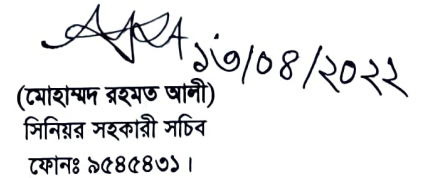 ১৩/০৪/২০২২
(মোহাম্মদ রহমত আলী)
সিনিয়র সহকারী সচিব
ফোনঃ ৯৫৪৫৪৩১।